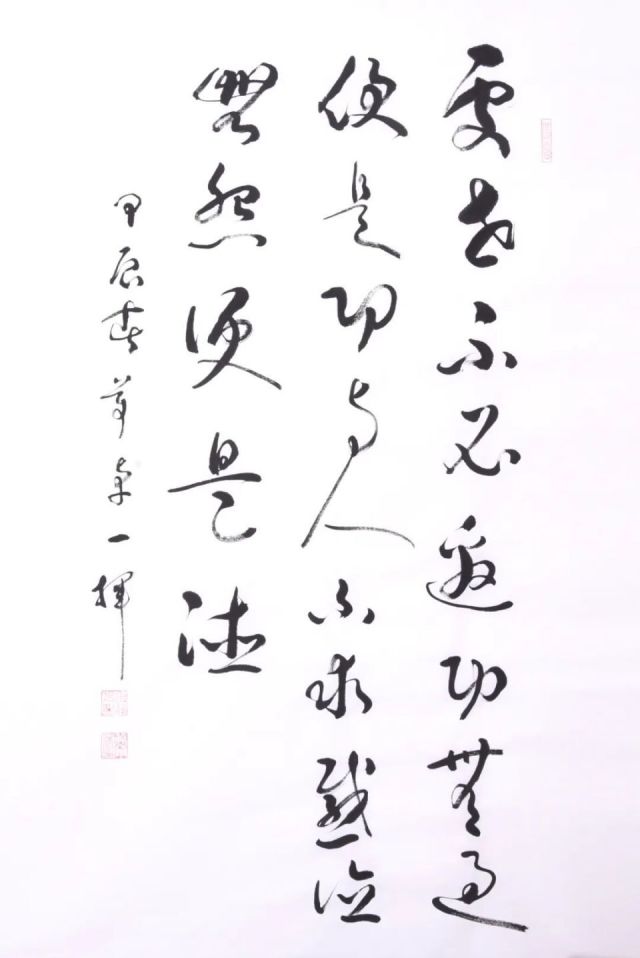 處世不必邀功無過
便是功與人不求感德
無怨便是德
甲辰春菁卓一揮